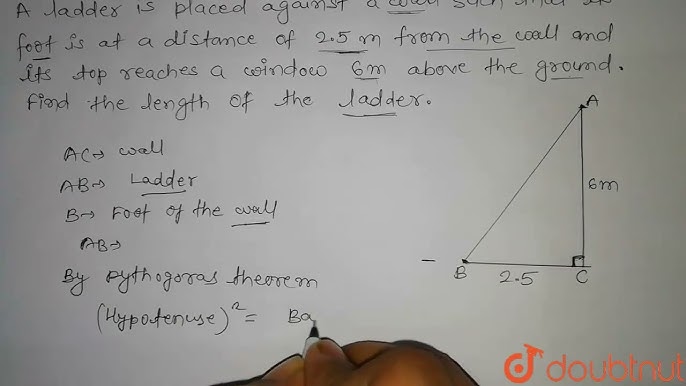 A ladder is placed against a wall such that its
foot is at a distance of 2.5 m from the wall and
its top reaches a window 6m above the ground.
Find the length of the ladder.
A
AC→ wall
AB→ Ladder
6m
B→ Foot of the wall
AB→
B 2.5 C
By pythogoras theorem
(Hypotenuse)² = Ba
doubtnut